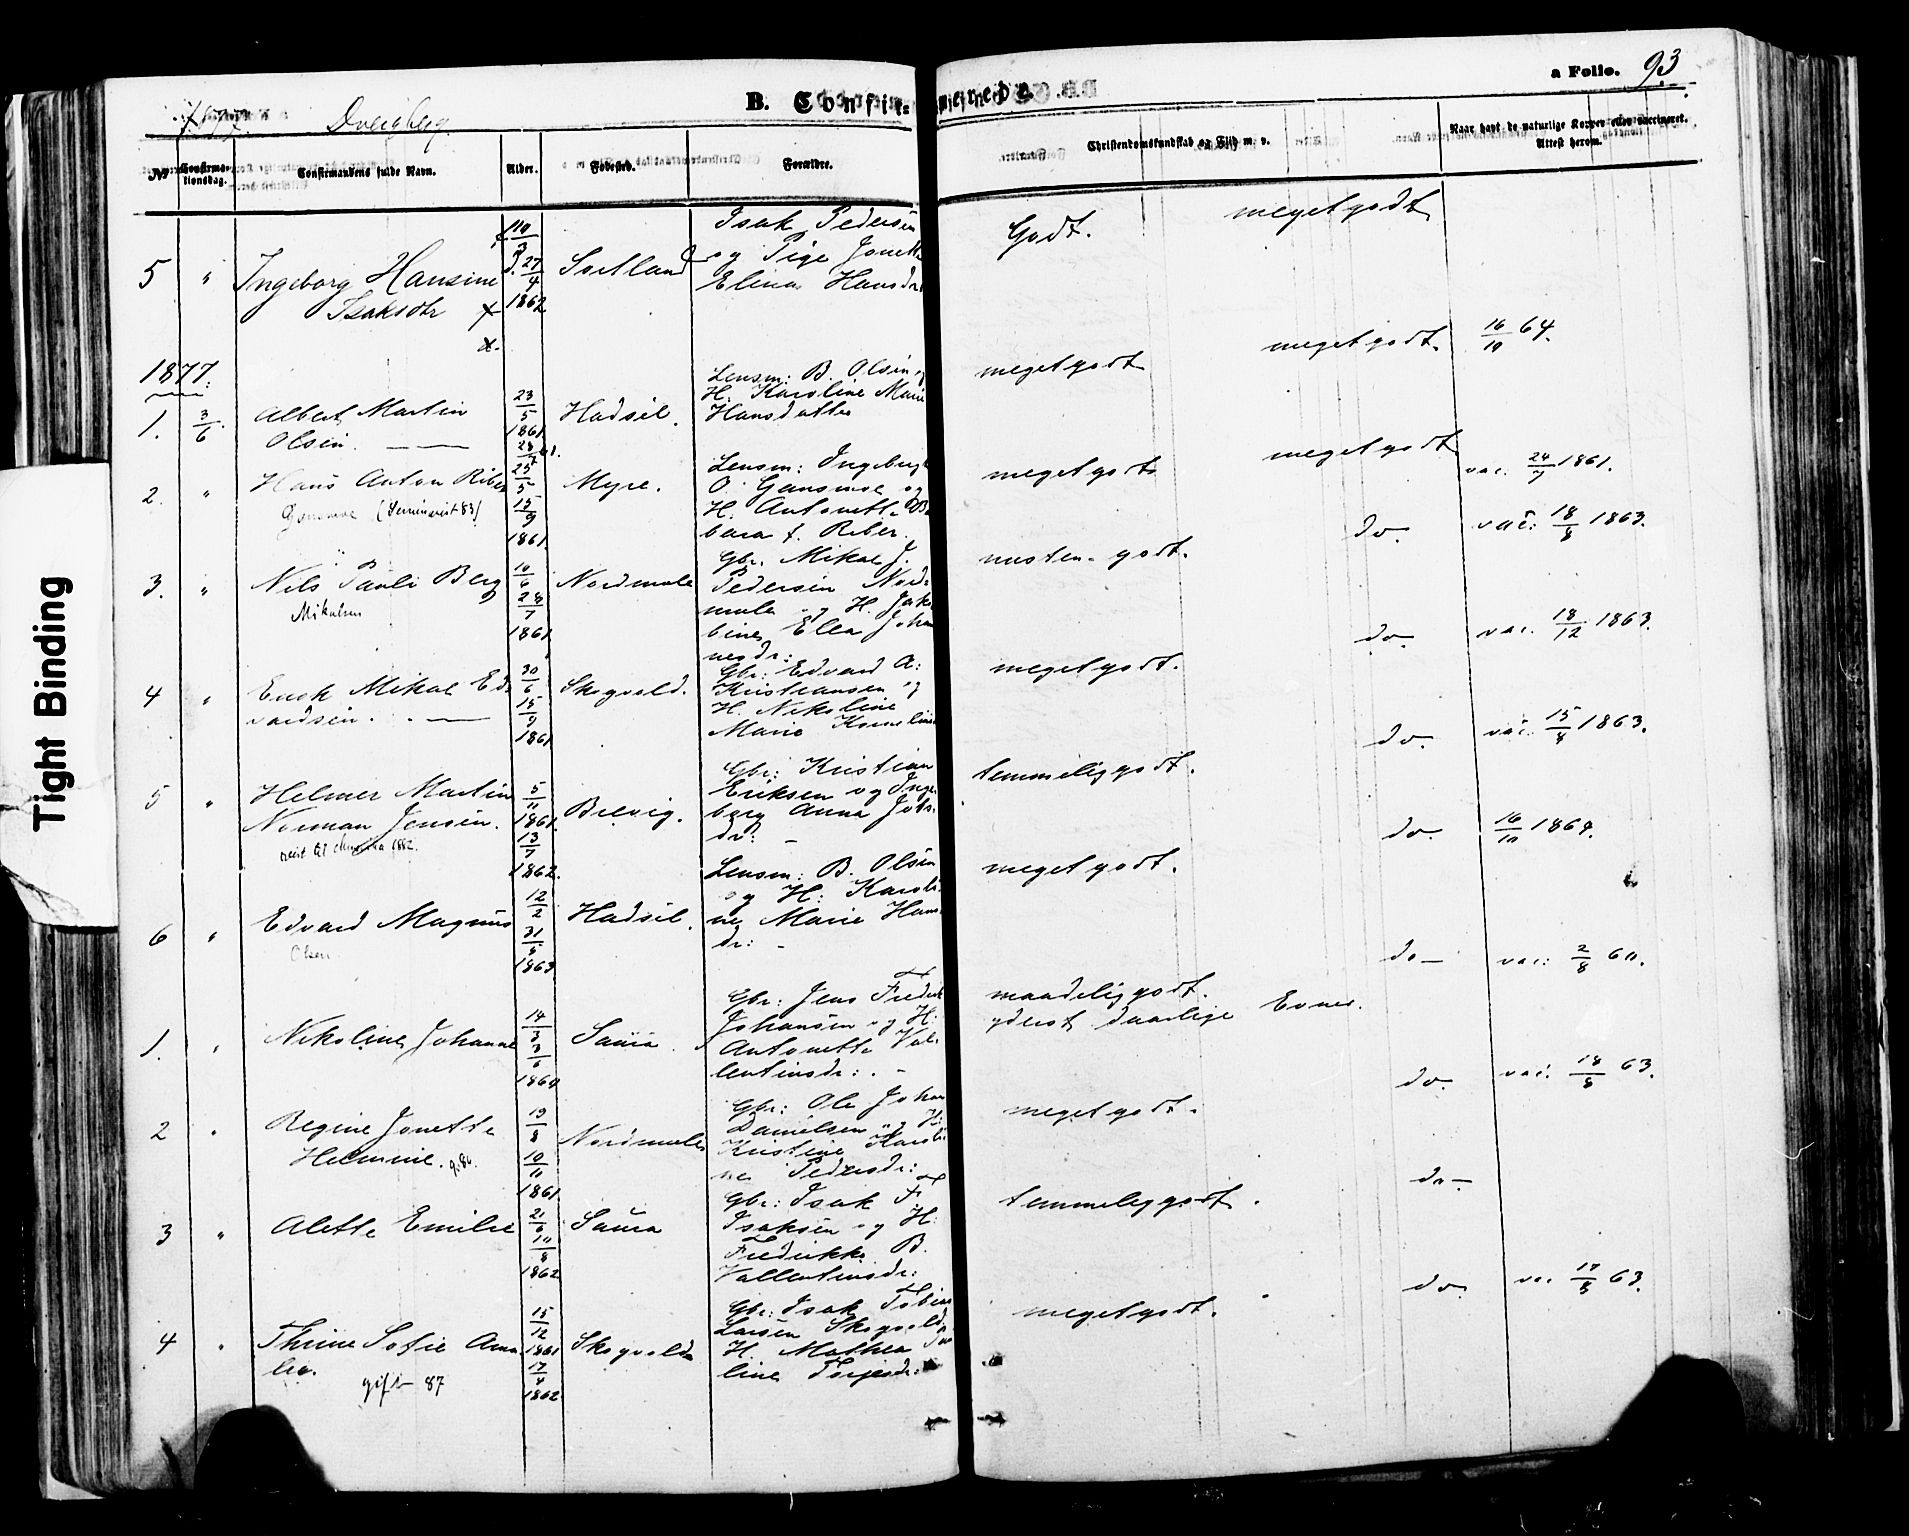 Tight Binding
B. Confirmerede.
a Folio. 93
Dverberg
No
Confirma-
tionsdag.
Confirmandens fulde Navn.
Alder.
Fødested.
Forældre.
Christendomskundskab og Flid m. v.
Naar havt de naturlige Kopper eller vaccineret.
Attest herom.
5 " Ingeborg Hansine
Isaksdtr
10/3
27/4
1862
Isak Pedersen
og Pige Jonette
Elina Hansdr
Godt. meget godt
1877.
1. 3/6 Albert Martin
Olsen.
23/5
1861
28/7 61.
Hadsel.
Lensm: B. Olsen og
H. Karoline Marie
Hansdatter
meget godt meget godt. 16/10 64.
2. " Hans Anton Riber
(Seminarist 83)
25/5
15/9
1861
Myre.
Lensm: Ingebrigt
O. Gansmoe og
H. Antonette Bar
bara f. Riber.
meget godt meget godt vac. 24/7 1861.
3. " Nils Pauli Berg
Mikalsen
10/6
28/7
1861
Nordmele
Gbr. Mikal J.
Pedersen Nord-
mele og H. Jako
bine Elea Johan
nesdr:
næsten godt. do. vac: 18/8 1863.
4 " Enok Mikal Ed-
vardsen.
30/6
15/9
1861
Skogvold.
Gbr: Edvard A:
Kristiansen og
H. Nikoline
Marie Korneline
meget godt. do. vac. 18/12 1863.
5 " Helmer Martin
Norman Jensen.
1882.
5/11
1861.
13/7
1862.
Brevig.
Gbr: Kristian
Eriksen og Inge
borg Anna Johs.
dr:
temmelig godt. do. vac. 15/8 1863.
6 " Edvard Magnus
Olsen.
12/2
31/5
1863
Hadsel.
Lensm: B. Olsen
og H: Karoli
ne Marie Hans
dr:
meget godt. do. 16/10 1864.
1. " Nikoline Johanne
14/3
3/6
1860
Saura.
Gbr: Jens Fredrik
Johansen og H:
Antonette Val-
lentinsdr:
maadelig godt.
yderst daarlige Evner.
do vac: 2/8 60.
2 " Regine Jonette
Helmine.
19/8
10/11
1861
Nordmele
Gbr: Ole Johan
Danielsen og H:
Kristine Karoli
ne Pedersdr:
meget godt. do. vac. 18/8 63.
3 " Alette Emilie
21/6
10/8
1862
Saura
Gbr: Isak F
Isaksen og H:
Fredrikke B.
Vallentinsdr:
temmelig godt. do
4 " Thrine Sofie Ama
lia.
gift 87
15/12
1861
17/4
1862
Skogvold
Gbr: Isak Tobias
Larsen Skogvold
H. Mathea Pau
line Torjesdr:
meget godt. do. va. 17/8 63.